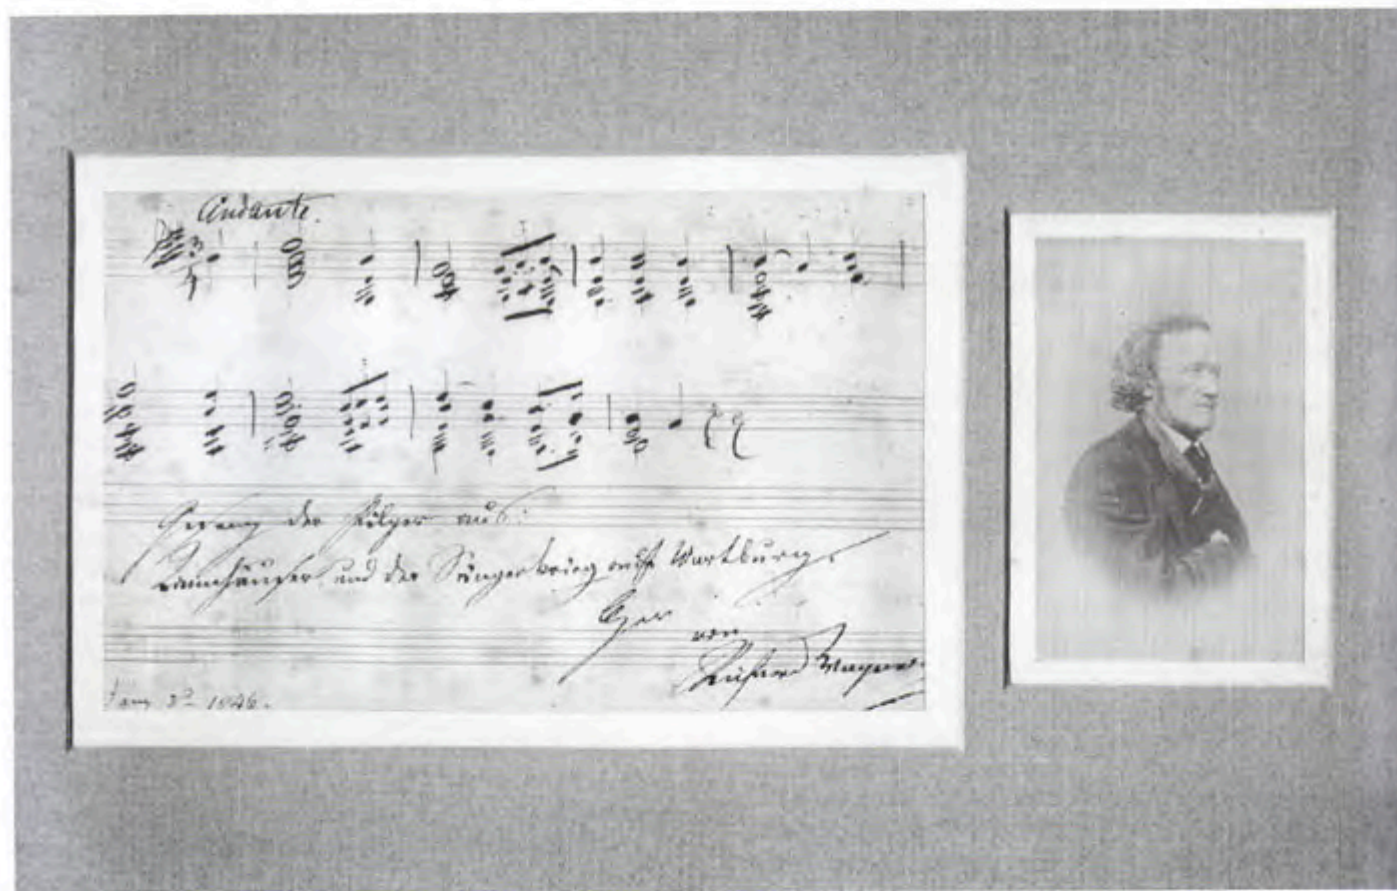 Andante.
Gesang der Pilger aus:
Tannhäuser und der Sängerkrieg auf Wartburg.
von
Richard Wagner
Jan 3d 1846.